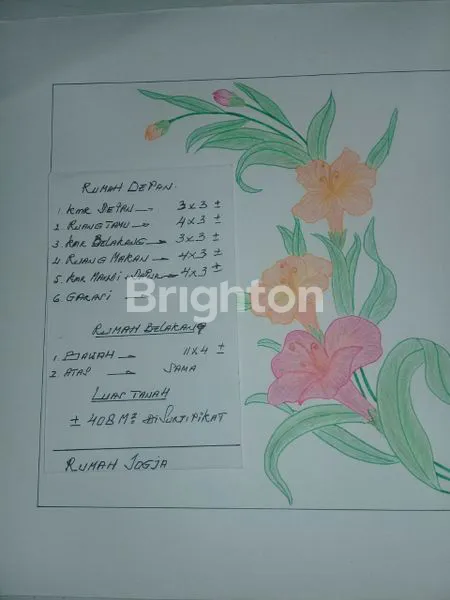 RUMAH DEPAN.
1. KMR DEPAN — 3 x 3 ±
2. RUANG TAMU — 4 x 3 ±
3. KMR BELAKANG — 3 x 3 ±
4. RUANG MAKAN — 4 x 3 ±
5. KMR MANDI, DAPUR — 4 x 3 ±
6. GARASI —
Brighton
RUMAH BELAKANG
1. BAWAH — 11 x 4 ±
2. ATAS — SAMA
LUAS TANAH
± 408 M² DI SERTIPIKAT
RUMAH JOGJA